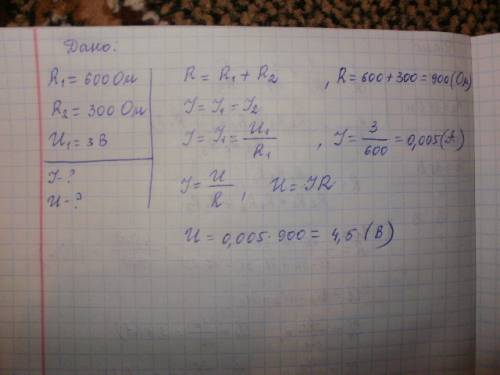 Дано:
R₁ = 600 Ом
R₂ = 300 Ом
U₁ = 3 В
I - ?
U - ?
R = R₁ + R₂ , R = 600 + 300 = 900 (Ом)
I = I₁ = I₂
I = I₁ = U₁/R₁ , I = 3/600 = 0,005 (А)
I = U/R , U = IR
U = 0,005 · 900 = 4,5 (В)